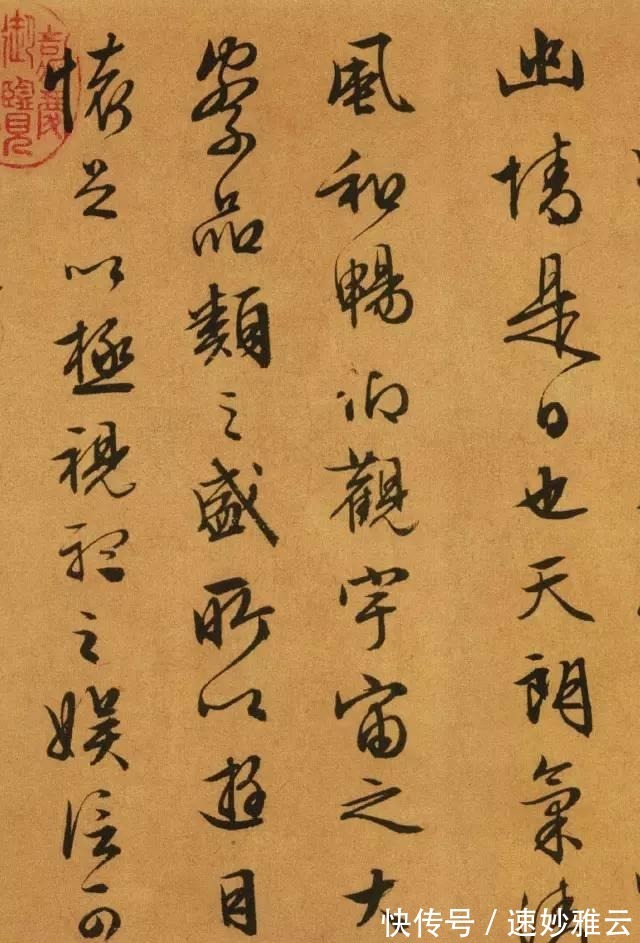 幽情是日也天朗氣清
風和暢仰觀宇宙之大
察品類之盛所以遊目
懷足以極視聽之娛信可
嘉慶
御覽
快传号 / 速妙雅云